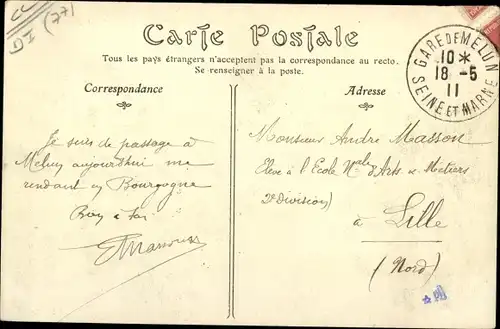 GI (77)
Carte Postale
Tous les pays étrangers n'acceptent pas la correspondance au recto.
Se renseigner à la poste.
Correspondance
Adresse
GARE DE MELUN
10 *
18 - 5
11
SEINE ET MARNE
Je suis de passage à
Melun aujourd'hui me
rendant en Bourgogne
à toi
Monsieur André Masson
Elève à l'Ecole Nale d'Arts et Métiers
2e division)
à Lille
(Nord)